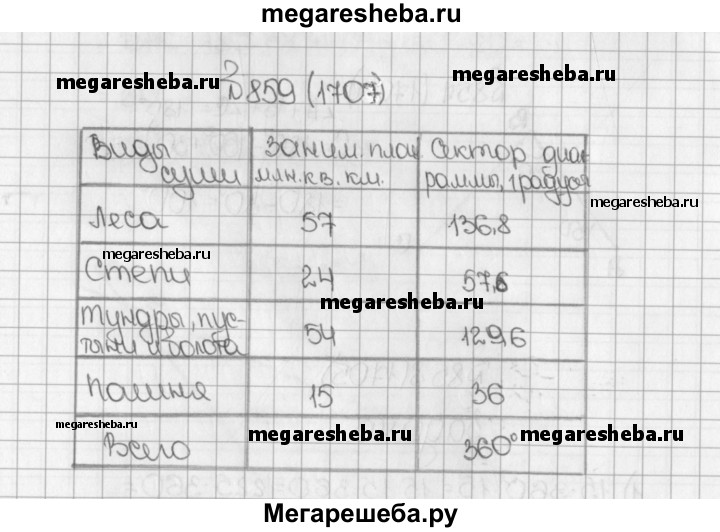 megaresheba.ru
megaresheba.ru
megaresheba.ru
№859 (1707)
Виды суши заним. пла млн.кв.км. Сектор диаграммы, градусы
megaresheba.ru
Леса 57 136,8
megaresheba.ru
Степи 24 57,6
megaresheba.ru
Тундры, пустыни и болота 54 129,6
Пашня 15 36
Всего megaresheba.ru 360° megaresheba.ru
Мегарешеба.ру